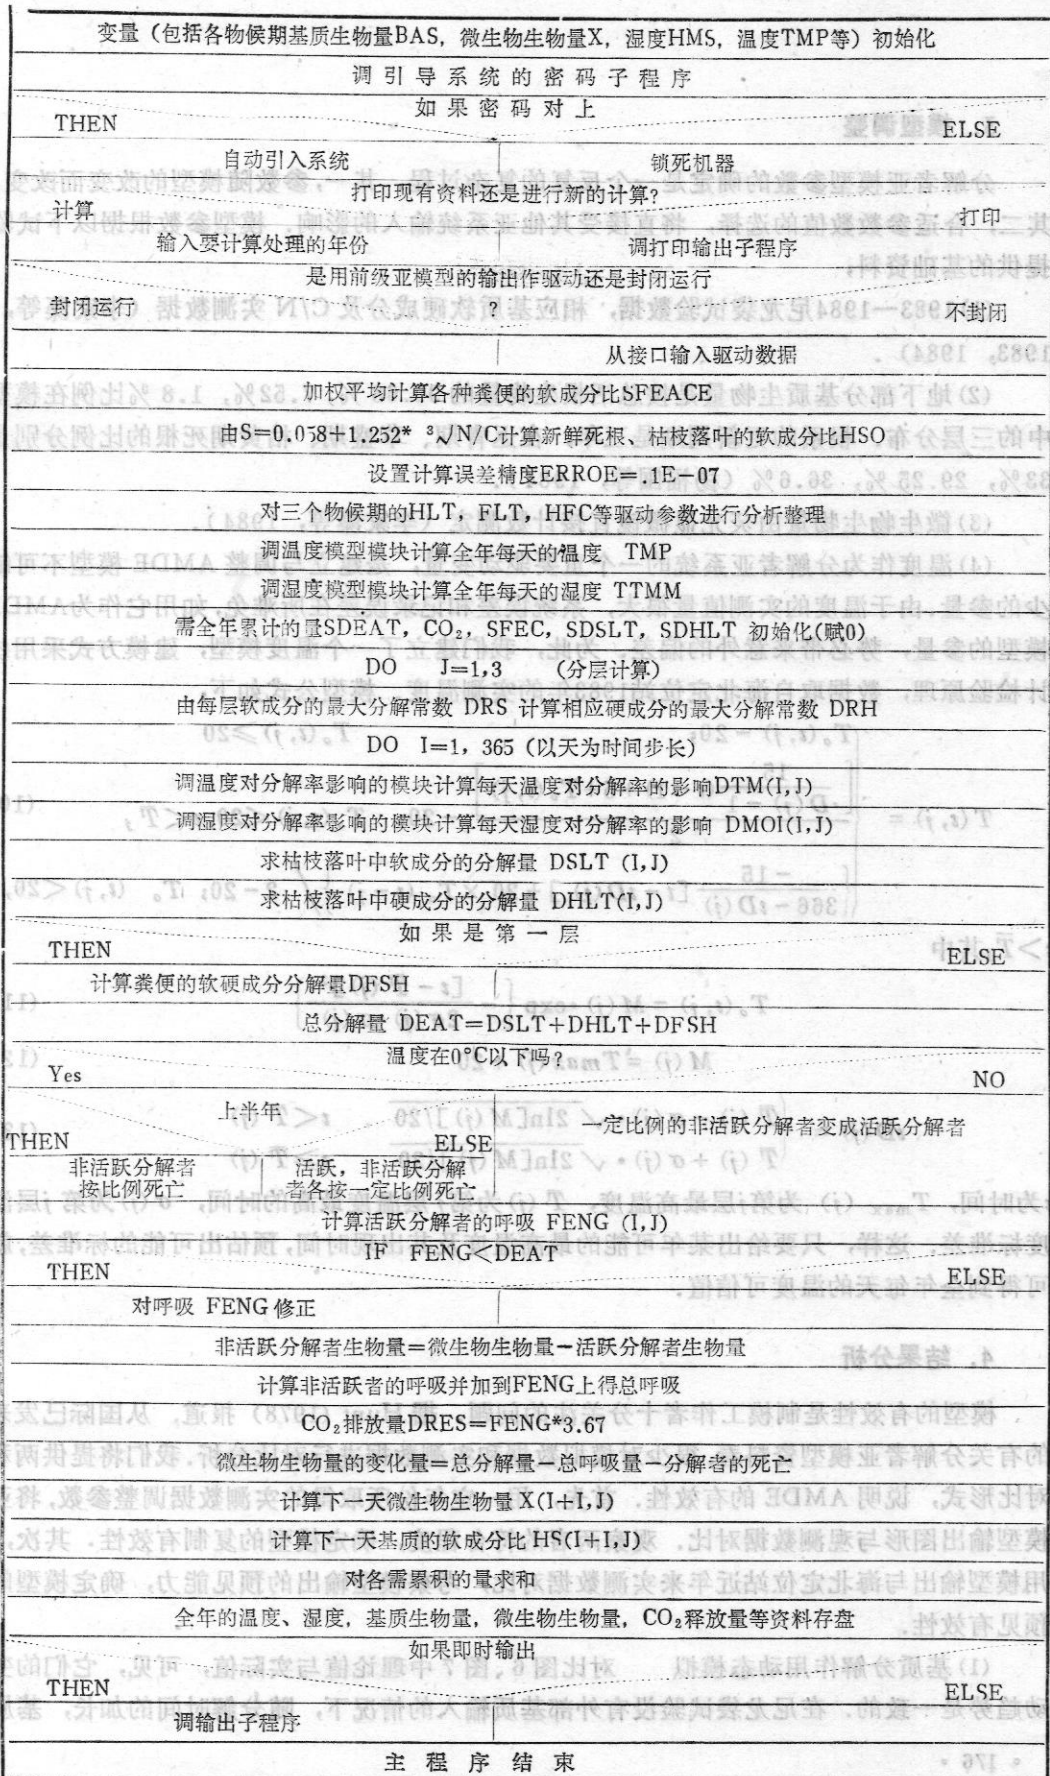 变量（包括各物候期基质生物量BAS，微生物生物量X，湿度HMS，温度TMP等）初始化
调引导系统的密码子程序
如果密码对上
THEN ELSE
自动引入系统 锁死机器
打印现有资料还是进行新的计算？
计算 打印
输入要计算处理的年份 调打印输出子程序
是用前级亚模型的输出作驱动还是封闭运行
封闭运行 ？ 不封闭
从接口输入驱动数据
加权平均计算各种粪便的软成分比SFEACE
由S=0.058+1.252* ³√N/C计算新鲜死根、枯枝落叶的软成分比HSO
设置计算误差精度ERROE=.1E-07
对三个物候期的HLT，FLT，HFC等驱动参数进行分析整理
调温度模型模块计算全年每天的温度 TMP
调湿度模型模块计算全年每天的湿度 TTMM
需全年累计的量SDEAT，CO₂，SFEC，SDSLT，SDHLT 初始化(赋0)
DO J=1,3 （分层计算）
由每层软成分的最大分解常数 DRS 计算相应硬成分的最大分解常数 DRH
DO I=1，365（以天为时间步长）
调温度对分解率影响的模块计算每天温度对分解率的影响DTM(I,J)
调湿度对分解率影响的模块计算每天湿度对分解率的影响 DMOI(I,J)
求枯枝落叶中软成分的分解量 DSLT (I,J)
求枯枝落叶中硬成分的分解量 DHLT(I,J)
如果是第一层
THEN ELSE
计算粪便的软硬成分分解量DFSH
总分解量 DEAT=DSLT+DHLT+DFSH
温度在0°C以下吗？
Yes NO
上半年 一定比例的非活跃分解者变成活跃分解者
THEN ELSE
非活跃分解者 活跃，非活跃分解
按比例死亡 者各按一定比例死亡
计算活跃分解者的呼吸 FENG (I,J)
IF FENG<DEAT
THEN ELSE
对呼吸 FENG 修正
非活跃分解者生物量=微生物生物量-活跃分解者生物量
计算非活跃者的呼吸并加到FENG上得总呼吸
CO₂排放量DRES=FENG*3.67
微生物生物量的变化量=总分解量-总呼吸量-分解者的死亡
计算下一天微生物生物量 X(I+I,J)
计算下一天基质的软成分比 HS(I+I,J)
对各需累积的量求和
全年的温度、湿度，基质生物量，微生物生物量，CO₂释放量等资料存盘
如果即时输出
THEN ELSE
调输出子程序
主程序结束